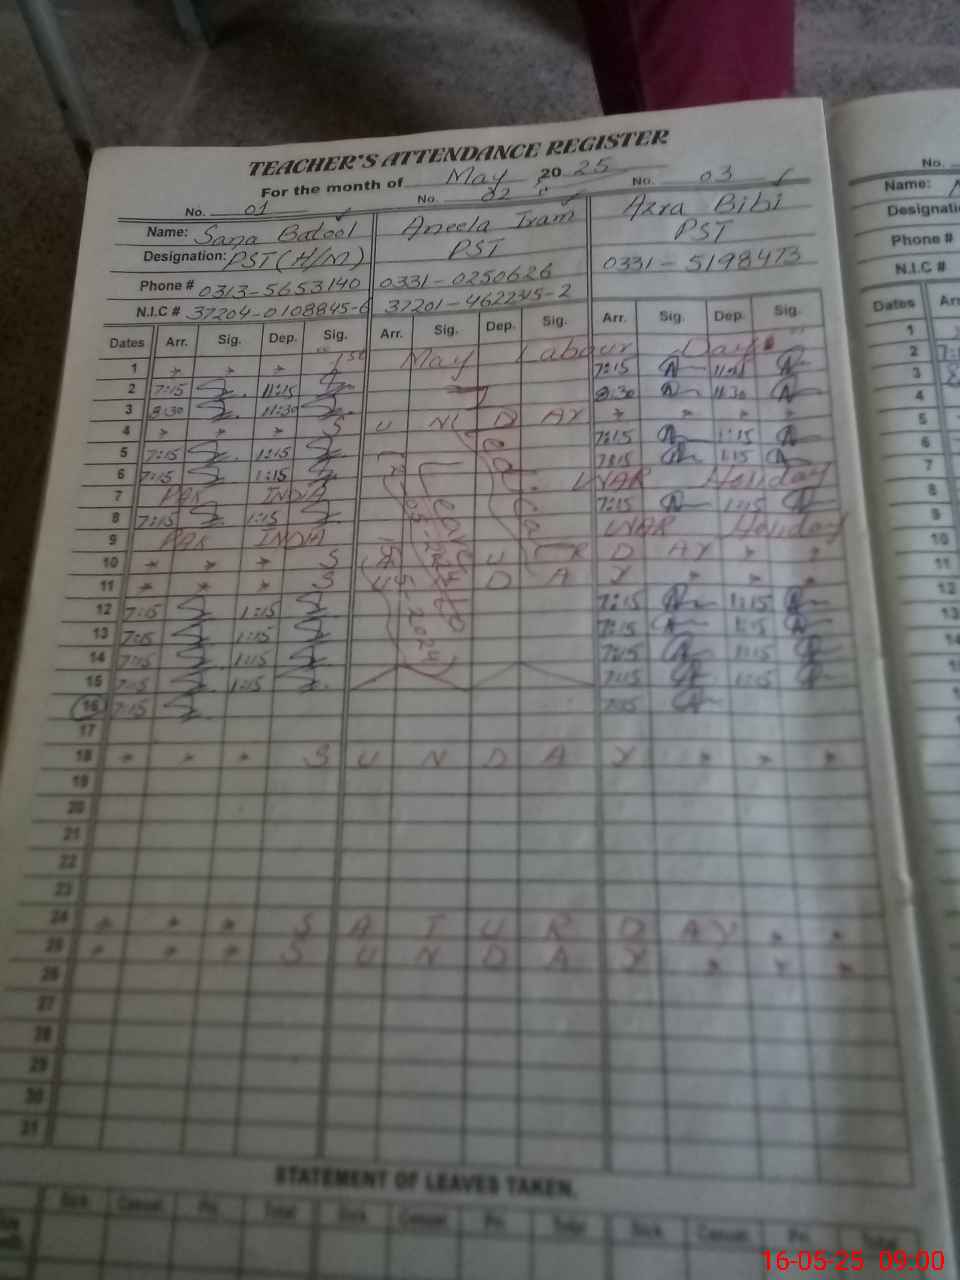 TEACHER'S ATTENDANCE REGISTER
For the month of May 2025
No. 01 No. 02 No. 03
Name: Sana Batool Aneela Iram Azra Bibi
Designation: PST (H/M) PST PST
Phone # 0313-5653140 0331-0250626 0331-5198473
N.I.C # 37204-0108845-6 37201-4622345-2
Dates Arr. Sig. Dep. Sig. Arr. Sig. Dep. Sig. Arr. Sig. Dep. Sig.
1 1st May Labour Day
2 7:15 11:15 7:15
3 8:30 11:30 8:30 11:30
4 S U N D A Y
5 7:15 1:15 7:15 1:15
6 7:15 1:15 7:15 1:15
7 PAK INDIA WAR Holiday
8 7:15 1:15 7:15 1:15
9 PAK INDIA WAR Holiday
10 S U R D A Y
11 S U D A Y
12 7:15 1:15 7:15 1:15
13 7:15 1:15 7:15 1:15
14 7:15 1:15 7:15 1:15
15 7:15 1:15 7:15 1:15
16 7:15 7:15
17
18 S U N D A Y
19
20
21
22
23
24 S A T U R D A Y
25 S U N D A Y
26
27
28
29
30
31
Leave
STATEMENT OF LEAVES TAKEN.
Sick Casual Pri. Total Sick Casual Pri. Total Sick Casual Pri. Total
No.
Name:
Designati
Phone #
N.I.C #
Dates Arr
1
2
3
4
5
6
7
8
9
10
11
12
13
16-05-25 09:00